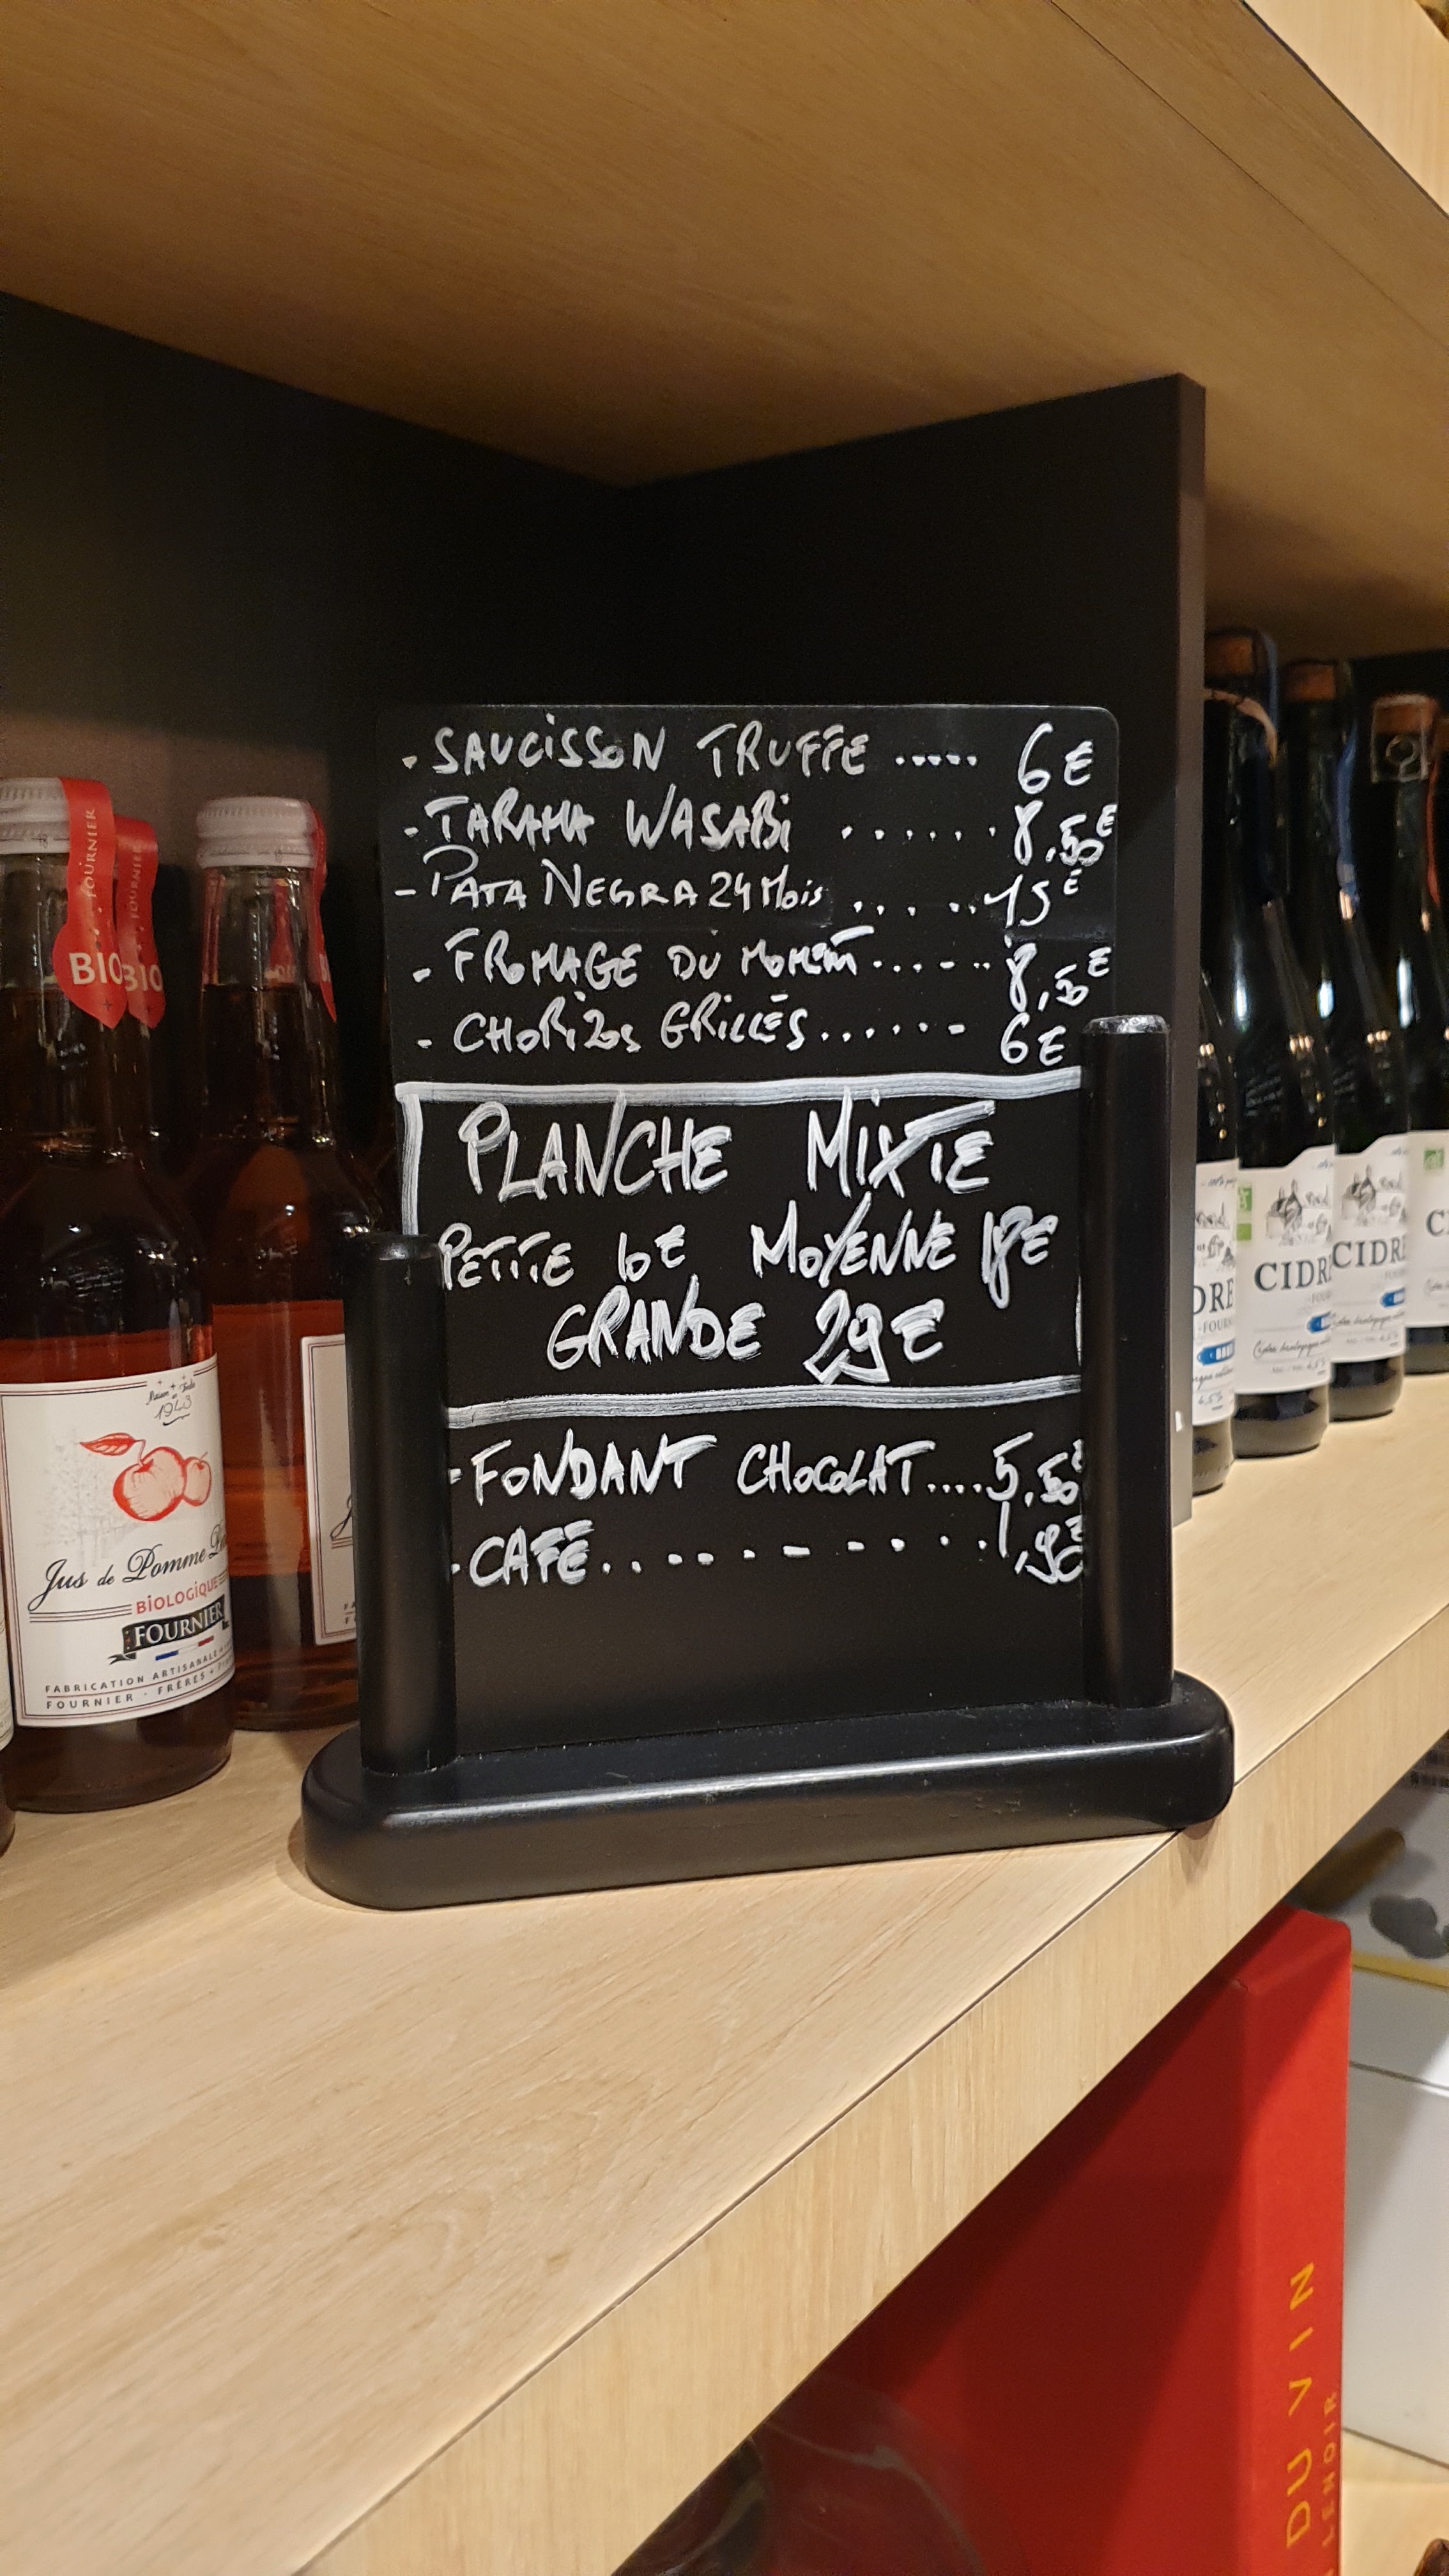 - SAUCISSON TRUFFE ..... 6€
- TARAMA WASABI ...... 8,50€
- PATA NEGRA 24 Mois ..... 15€
- FROMAGE DU MOMENT...-.. 8,50€
- CHORIZOS GRILLÉS.....- 6€
PLANCHE MIXTE
PETITE 10€ MOYENNE 18€
GRANDE 29€
- FONDANT CHOCOLAT.... 5,50€
- CAFÉ........... 1,90€
FOURNIER
FOURNIER
BIO
BIO
1943
Jus de Pomme
BIOLOGIQUE
FOURNIER
FABRICATION ARTISANALE
FOURNIER - FRÈRES
CIDRE
CIDRE
DU VIN
LENOIR